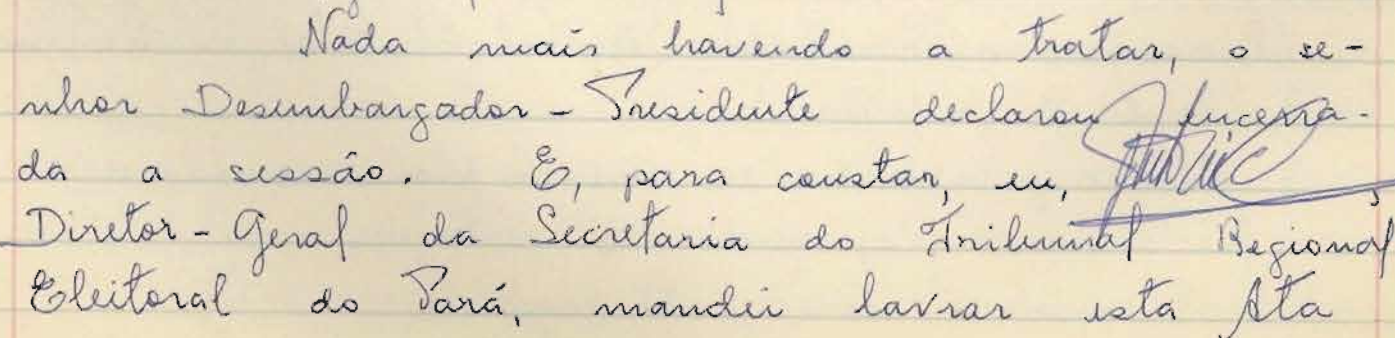 Nada mais havendo a tratar, o se-
nhor Desembargador-Presidente declarou encerra-
da a sessão. E, para constar, eu,
Diretor-Geral da Secretaria do Tribunal Regional
Eleitoral do Pará, mandei lavrar esta Ata